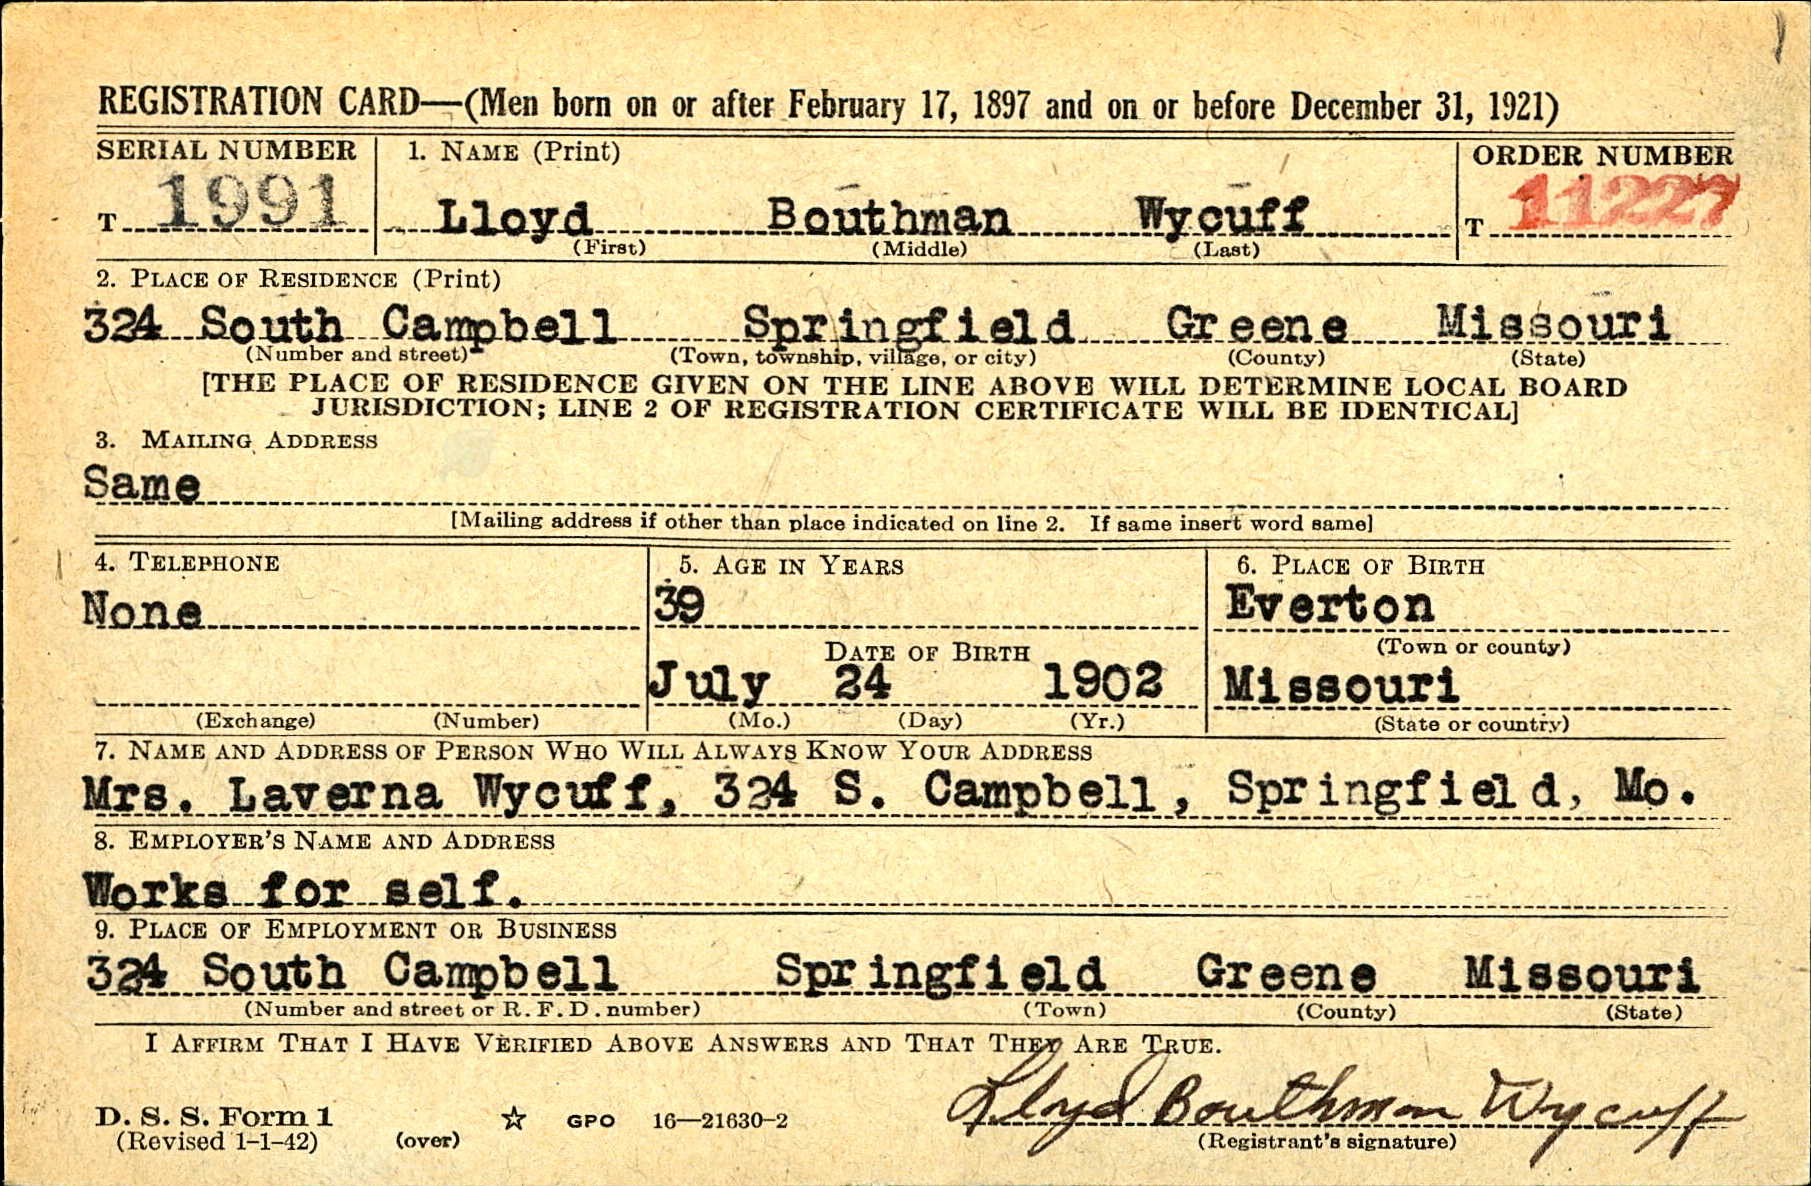 REGISTRATION CARD—(Men born on or after February 17, 1897 and on or before December 31, 1921)
SERIAL NUMBER 1. NAME (Print) ORDER NUMBER
T 1991 Lloyd Bouthman Wycuff T 11227
(First) (Middle) (Last)
2. PLACE OF RESIDENCE (Print)
324 South Campbell Springfield Greene Missouri
(Number and street) (Town, township, village, or city) (County) (State)
[THE PLACE OF RESIDENCE GIVEN ON THE LINE ABOVE WILL DETERMINE LOCAL BOARD
JURISDICTION; LINE 2 OF REGISTRATION CERTIFICATE WILL BE IDENTICAL]
3. MAILING ADDRESS
Same
[Mailing address if other than place indicated on line 2. If same insert word same]
4. TELEPHONE 5. AGE IN YEARS 6. PLACE OF BIRTH
None 39 Everton
DATE OF BIRTH (Town or county)
July 24 1902 Missouri
(Exchange) (Number) (Mo.) (Day) (Yr.) (State or country)
7. NAME AND ADDRESS OF PERSON WHO WILL ALWAYS KNOW YOUR ADDRESS
Mrs. Laverna Wycuff, 324 S. Campbell, Springfield, Mo.
8. EMPLOYER'S NAME AND ADDRESS
Works for self.
9. PLACE OF EMPLOYMENT OR BUSINESS
324 South Campbell Springfield Greene Missouri
(Number and street or R. F. D. number) (Town) (County) (State)
I AFFIRM THAT I HAVE VERIFIED ABOVE ANSWERS AND THAT THEY ARE TRUE.
D. S. S. Form 1 GPO 16—21630-2 Lloyd Bouthman Wycuff
(Revised 1-1-42) (over) (Registrant's signature)